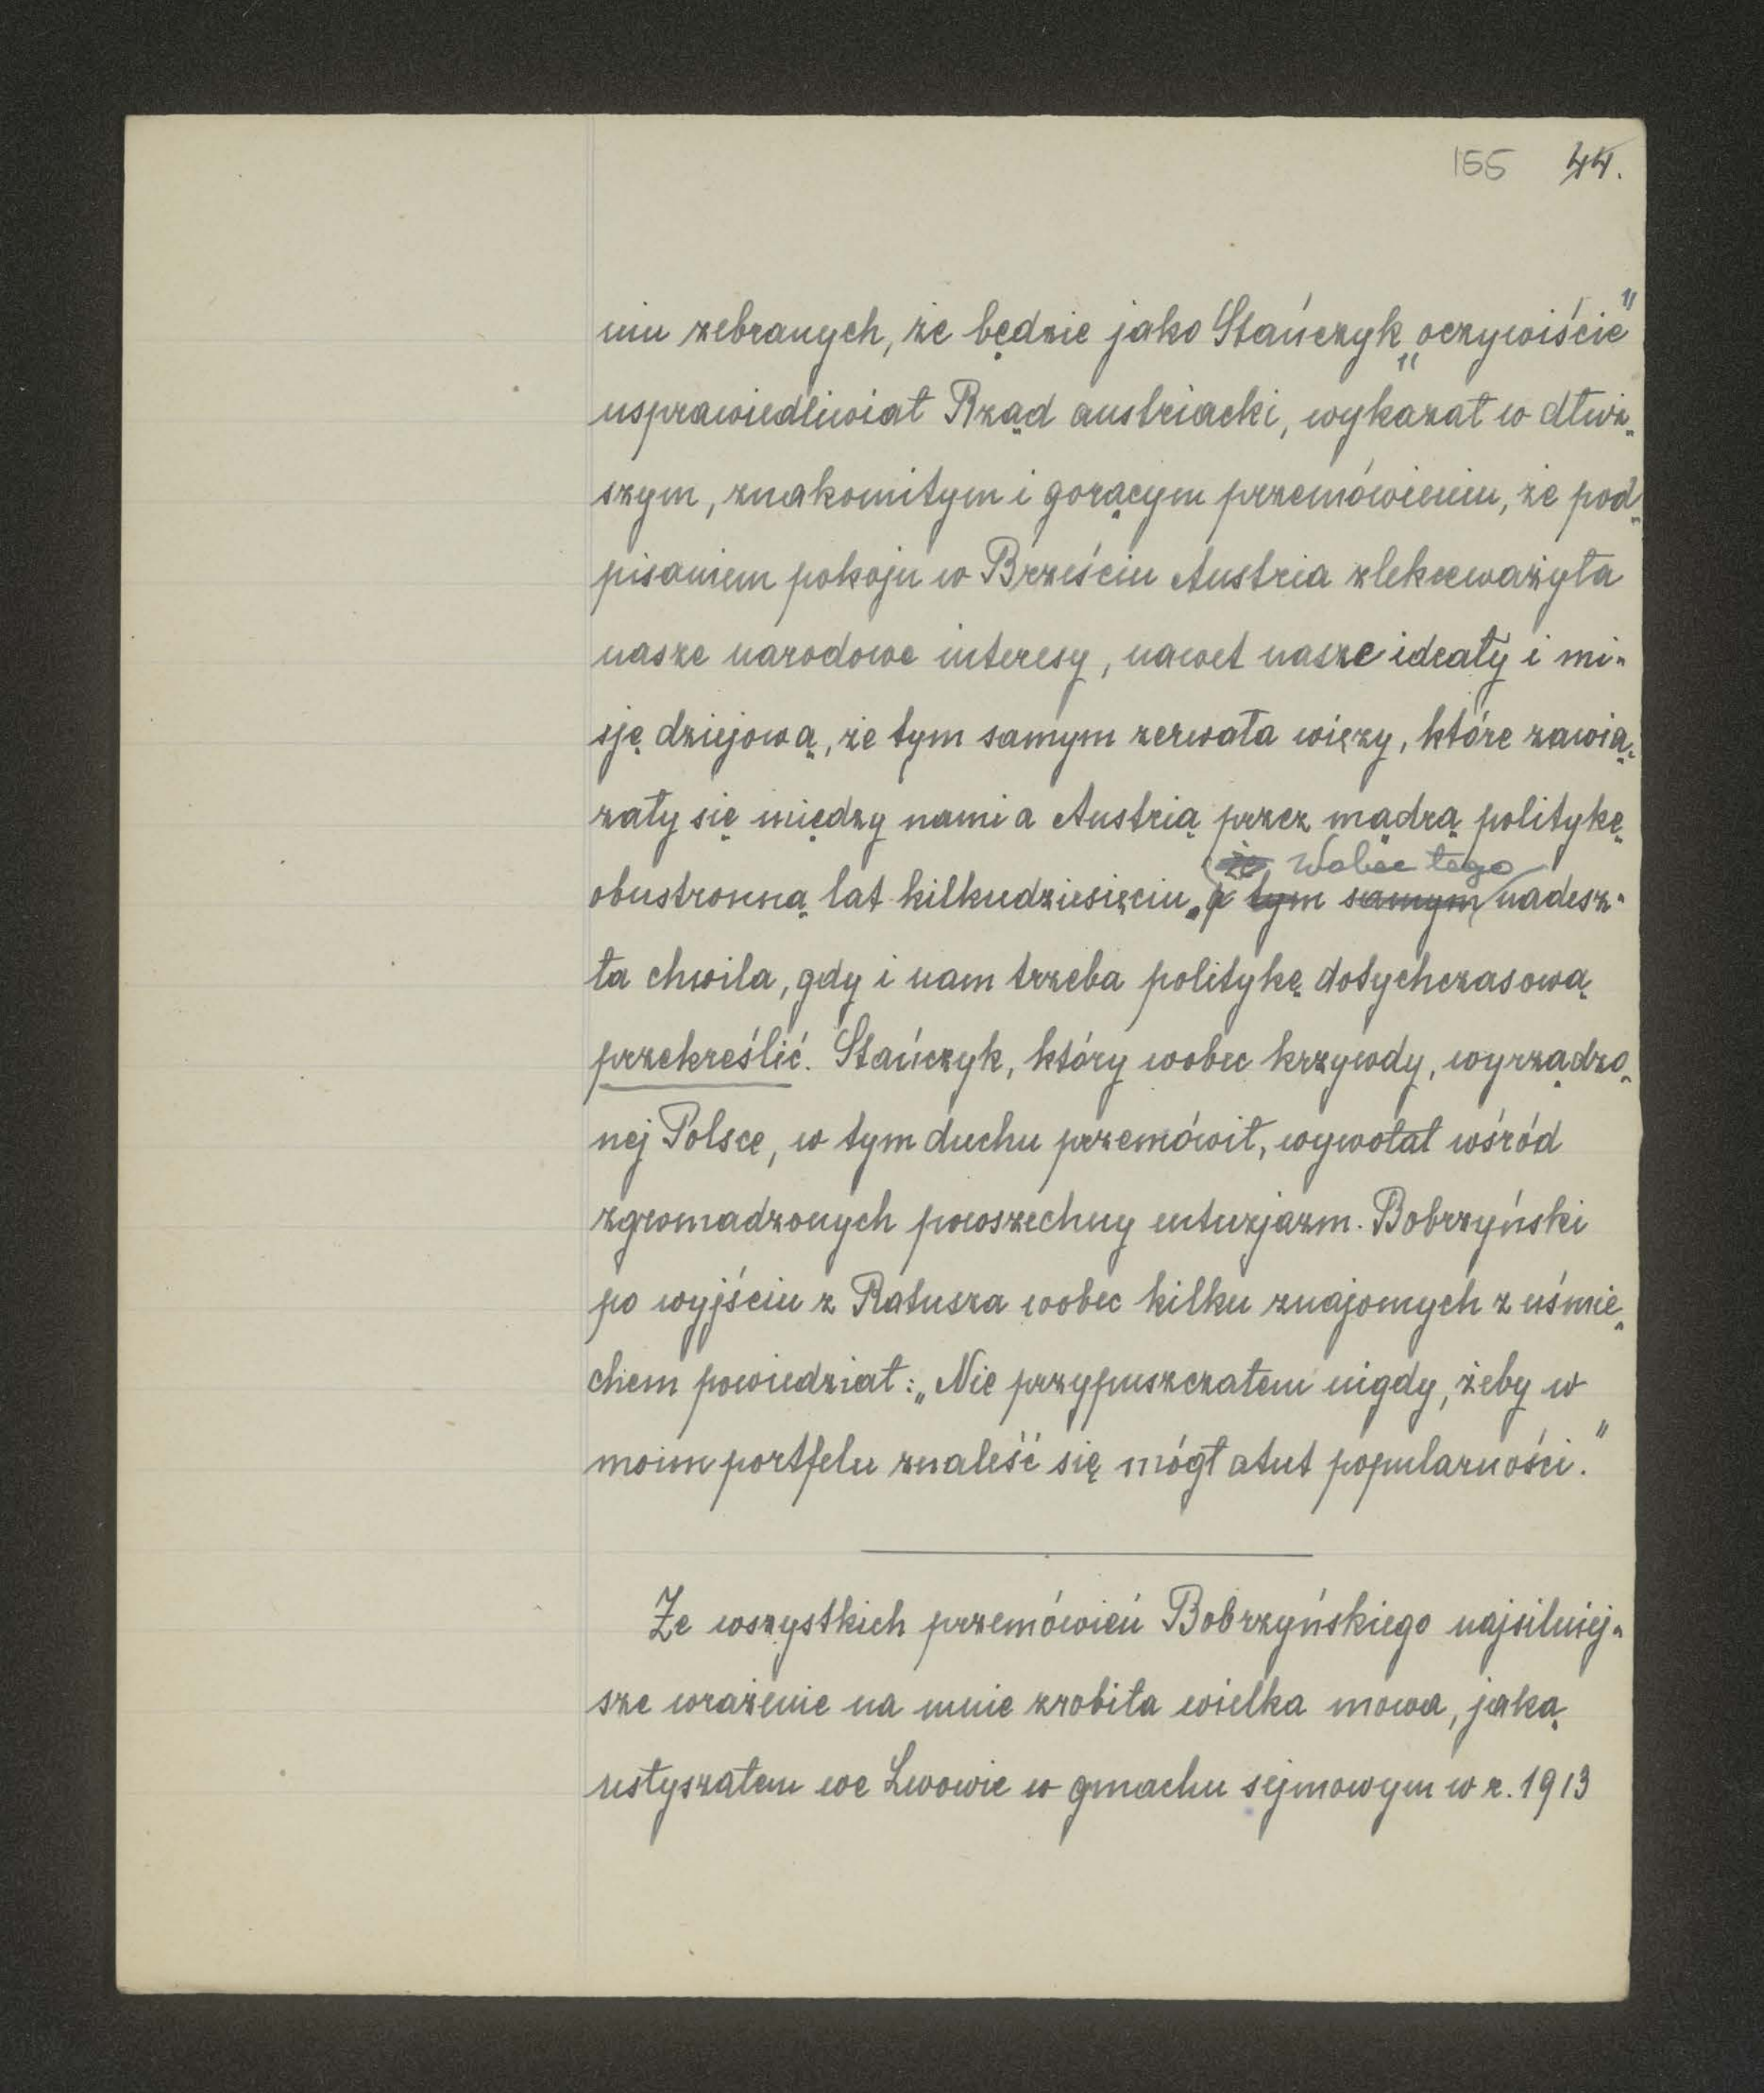 155 44.
niu zebranych, że będzie jako Stańczyk „oczywiście”
usprawiedliwiał Rząd austriacki, wykazał w dłuż„
szym, znakomitym i gorącym przemówieniu, że pod„
pisaniem pokoju w Brześciu Austria zlekceważyła
nasze narodowe interesy, nawet nasze ideały i mi„
sję dziejową, że tym samym zerwała więzy, które zawią„
zały się między nami a Austrią przez mądrą politykę
że Wobec tego
obustronną lat kilkudziesięciu, a tym samym nadesz„
ła chwila, gdy i nam trzeba politykę dotychczasową
przekreślić. Stańczyk, który wobec krzywdy, wyrządzo„
nej Polsce, w tym duchu przemówił, wywołał wśród
zgromadzonych powszechny entuzjazm. Bobrzyński
po wyjściu z Ratusza wobec kilku znajomych z uśmie„
chem powiedział: „Nie przypuszczałem nigdy, żeby w
moim portfelu znaleść się mógł atut popularności.”
Ze wszystkich przemówień Bobrzyńskiego najsilniej„
sze wrażenie na mnie zrobiła wielka mowa, jaką
usłyszałem we Lwowie w gmachu sejmowym w r. 1913